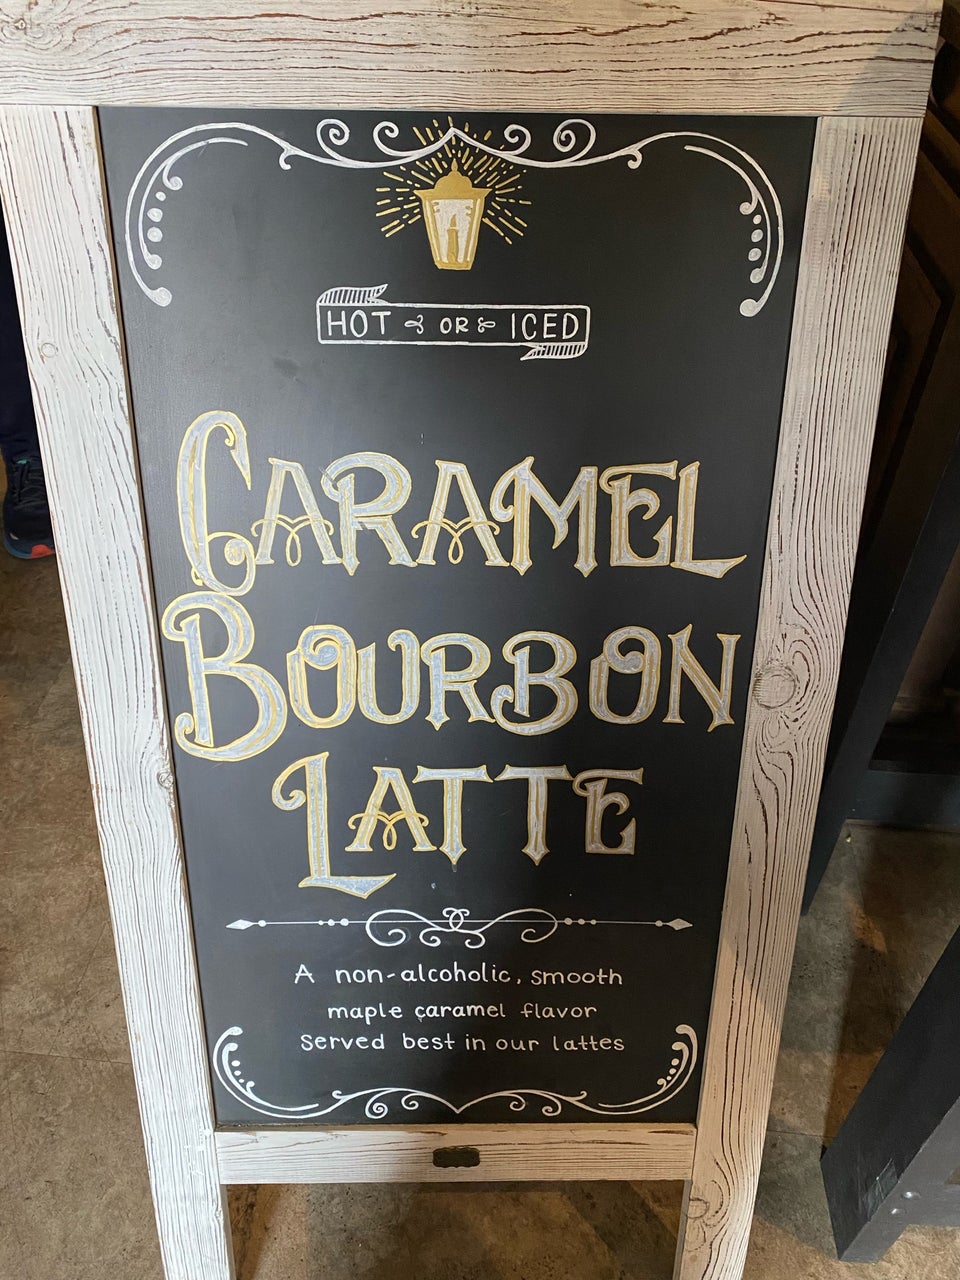 HOT OR ICED
CARAMEL
BOURBON
LATTE
A non-alcoholic, smooth
maple caramel flavor
Served best in our lattes